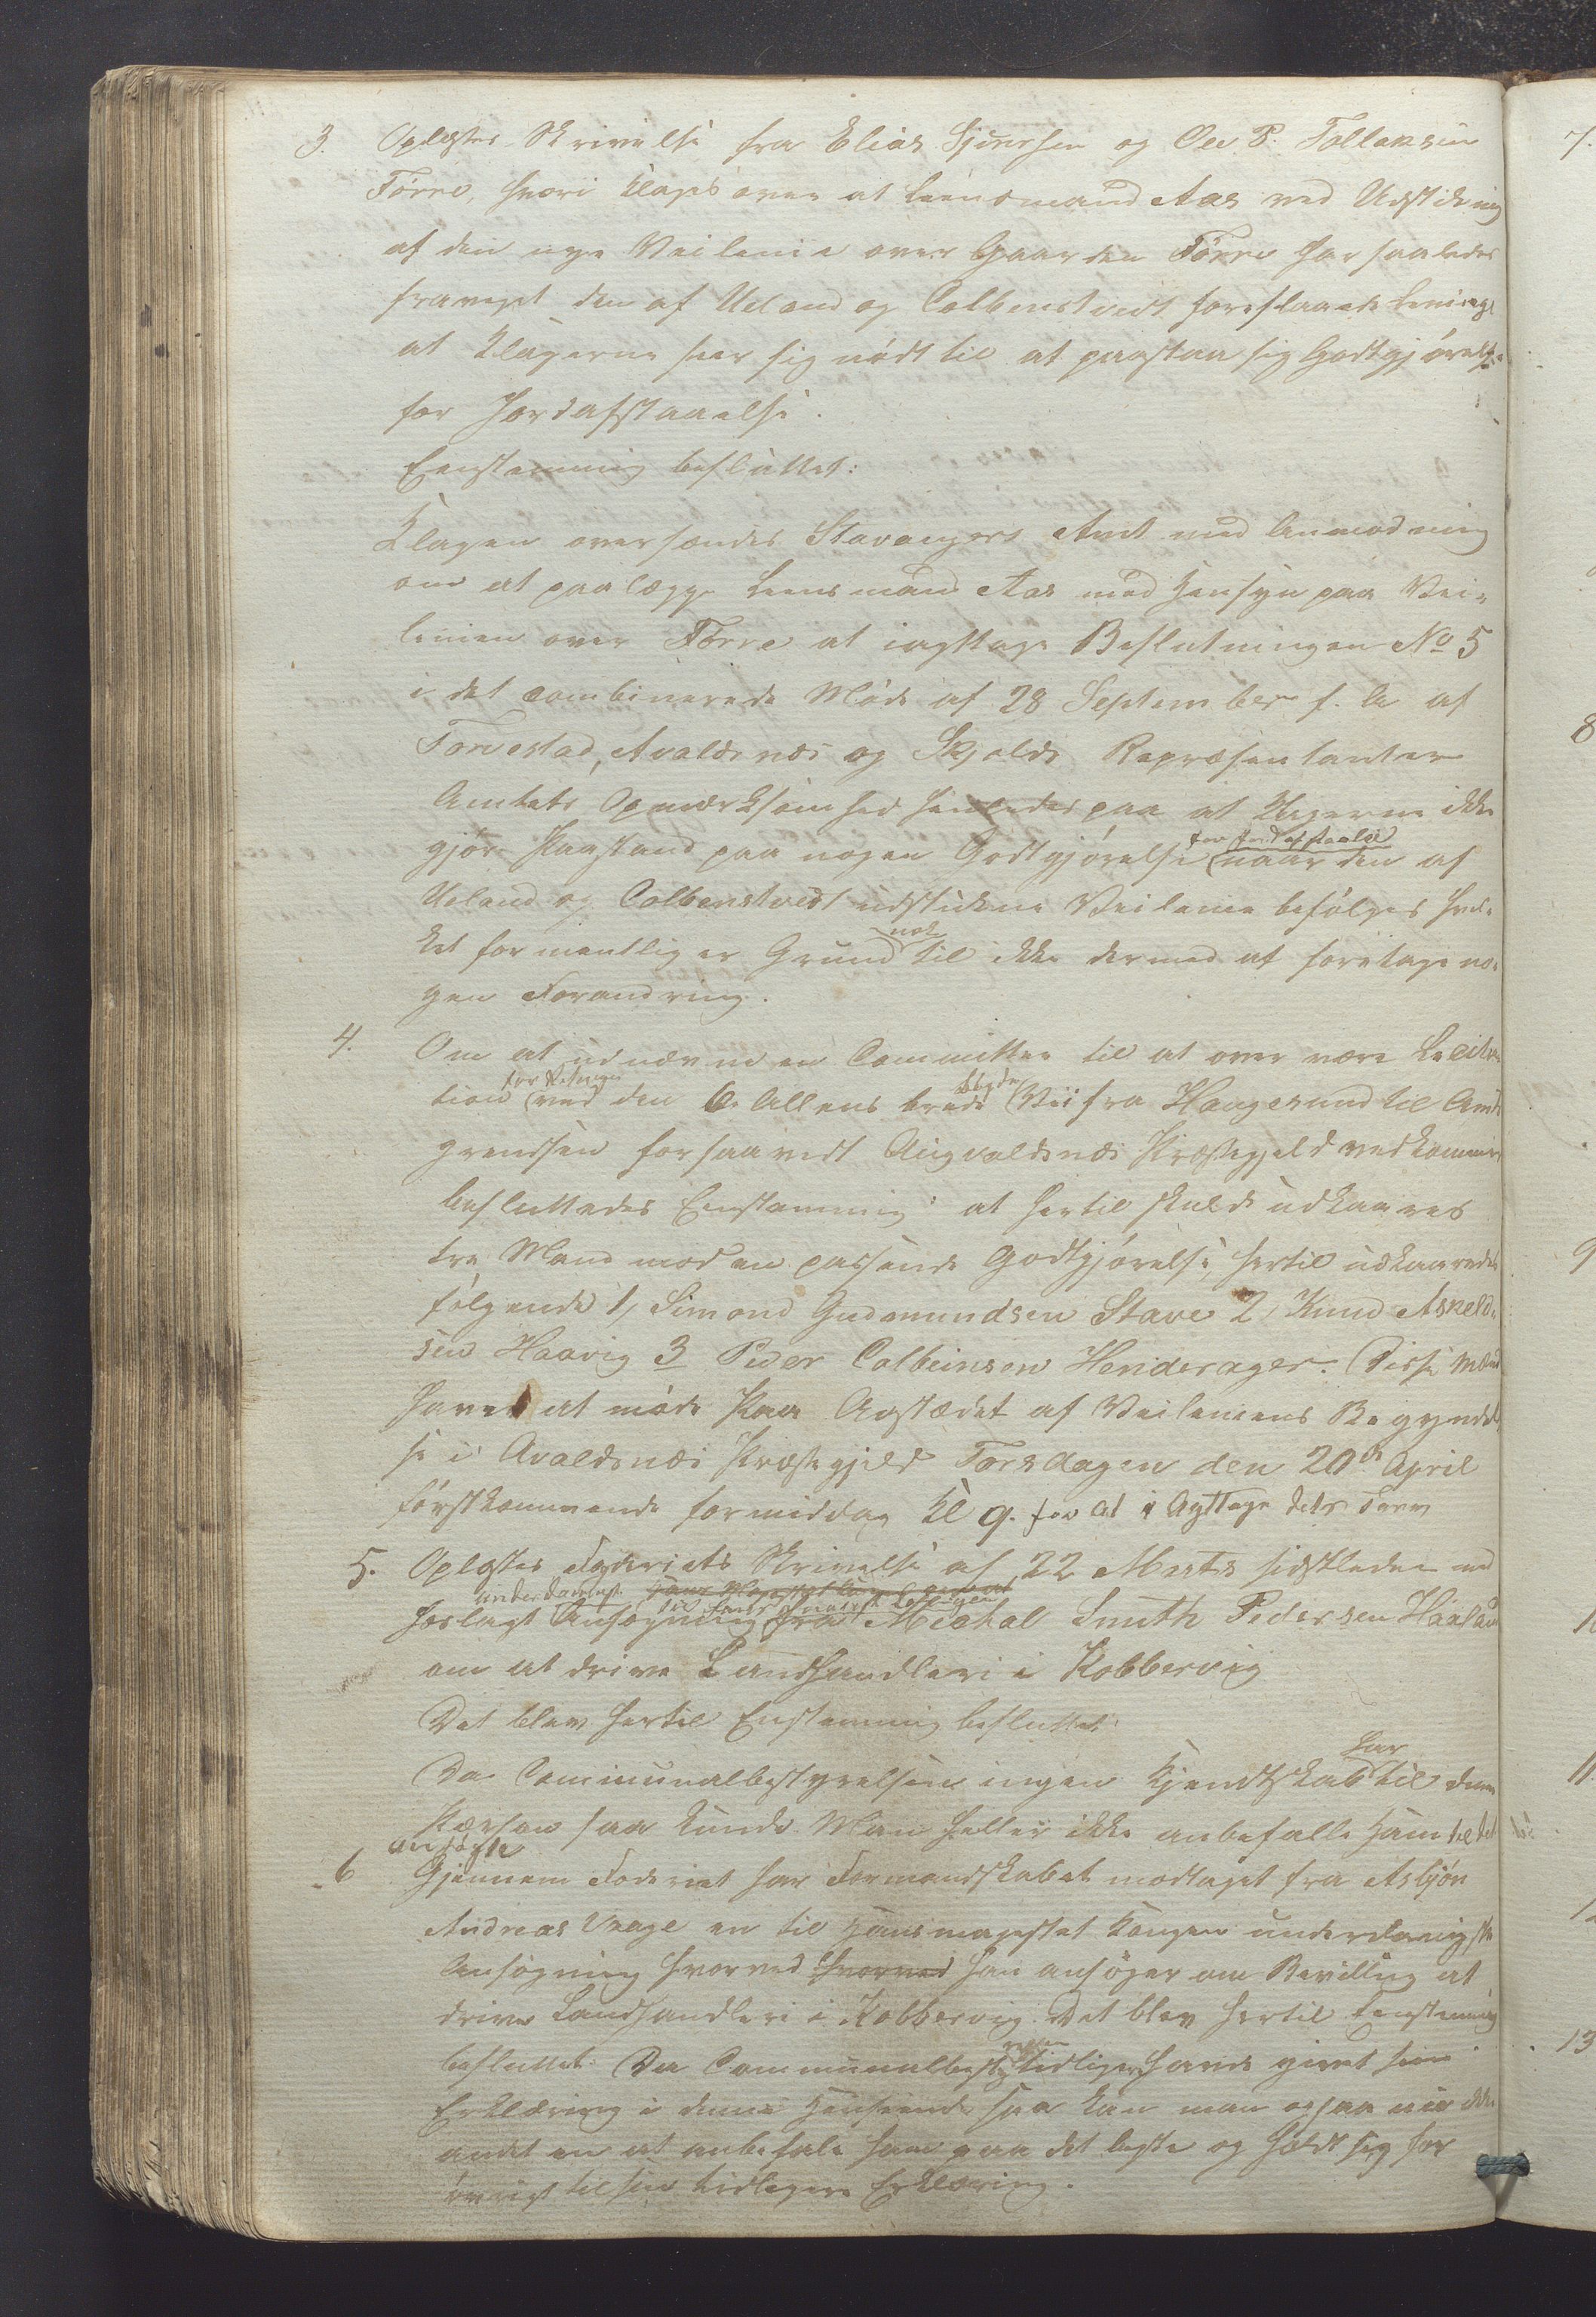 3. Oplæstes Skrivelse fra Elias Sjursen og Ole P. Tollaksen
Førre, hvori klages over at Leensmand Aas ved Udstikning
af den nye Veilenie over Gaarden Førre har saaledes
fraveget den af Ueland og Colbenstvedt foreslaaede Lenie
at Klagerne seer sig nødt til at paastaa sig Godtgjørelse
for Jordafstaaelse.
Eenstemmig besluttet:
Klagen oversændes Stavangers Amt med Anmodning
om at paalægge Leensmand Aas med Hensyn paa Vei-
lenien over Førre at iagttage Beslutningen No 5
i det combinerede Møde af 28 September f. A af
Torvestad, Avaldsnæs og Skjolds Repræsentanter
Amtets Opmærksomhed henledes paa at Klagerne ikke
gjør Paastand paa nogen Godtgjørelse for Jordafstaaelse naar den af
Ueland og Colbenstvedt udstukne Veilenie befølges hvil-
ket formentlig er Grund nok til ikke dermed at foretage no-
gen Forandring.
4. Om at udnævne en Committee til at over være Licita-
tion for Retningen ved den 6 Allens brede Vei fra Haugesund til Amts
grendsen forsaavidt Augvaldsnæs Præstegjeld vedkommer
besluttedes Eenstemmig: at hertil skulde udkaares
tre Mænd mod en passende Godtgjørelse, hertil udkaaredes
følgende 1, Simond Gudmundsen Stave 2, Knud Askeld-
sen Haavig 3 Peder Colbeinsen Henderager. Disse Mænd
haver at møde paa Aastædet af Veileniens Begyndel-
se i Avaldsnæs Præstegjeld Torsdagen den 20de April
førstkommende formiddag Kl 9. for at i Agttage dets Tarv
5. Oplæstes Fogderiets Skrivelse af 22 Marts sidstleden med
underdanigst
til Hans Majestæt Kongen
forlagt Ansøgning fra Michal Smith Pedersen
om at drive Landhandleri i Kobbervig
Det blev hertil Enstemmig besluttet:
Da Communalbestyrelsen ingen Kjendtskab har til denne
Person saa kunde Man heller ikke anbefalle ham til det
ansøgte
6 Gjennem Foderiet har Formandskabet modtaget fra Asbjørn
Andreas Vrage en til Hans majestæt Kongen underdanigste
Ansøgning hvorved hvorved han ansøger om Bevilling at
drive Landhandleri i Kobbervig. Det blev hertil Eenstemmig
besluttet: Da Communalbestyrelsen tidligere havde givet sin
Erklæring i denne Henseende saa kan man ogsaa nu ikke
andet en at anbefale ham paa det beste og holdt sig for
øvrigt til sin tidligere Erklæring.
7.
8
9
10
11.
12
13